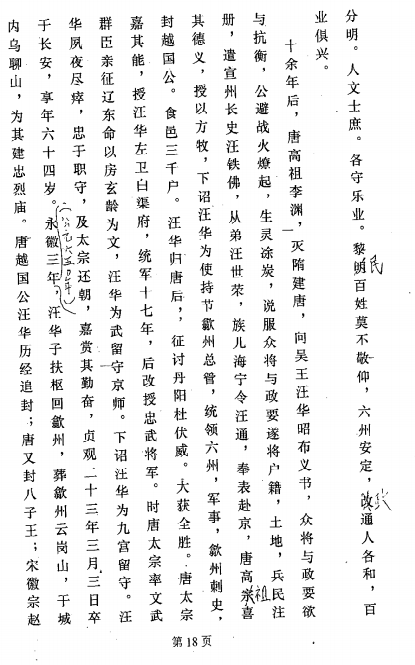 分明。人文士庶。各守乐业。黎朗民百姓莫不敬仰，六州安定，改政通人各和，百
业俱兴。
十余年后，唐高祖李渊，灭隋建唐，向吴王汪华昭布义书，众将与政要欲
与抗衡，公避战火燎起，生灵涂炭，说服众将与政要遂将户籍，土地，兵民注
册，遣宣州长史汪铁佛，从弟汪世荣，族儿海宁令汪通，奉表赴京，唐高宗祖喜
其德义，授以方牧，下诏汪华为使持节歙州总管，统领六州，军事，歙州刺史，
封越国公。食邑三千户。汪华归唐后，，征讨丹阳杜伏威。大获全胜。唐太宗
嘉其能，授汪华左卫白渠府，统军十七年，后改授忠武将军。时唐太宗率文武
群臣亲征辽东命以房玄龄为文，汪华为武留守京师。下诏汪华为九宫留守。汪
华夙夜尽瘁，忠于职守，及太宗还朝，嘉赏其勤奋，贞观二十三年三月三日卒
于长安，享年六十四岁。永徽三年，（公元六五〇年）汪华子扶枢回歙州，葬歙州云岗山，于城
内乌聊山，为其建忠烈庙。唐越国公汪华历经追封；唐又封八子王；宋徽宗赵
第18页